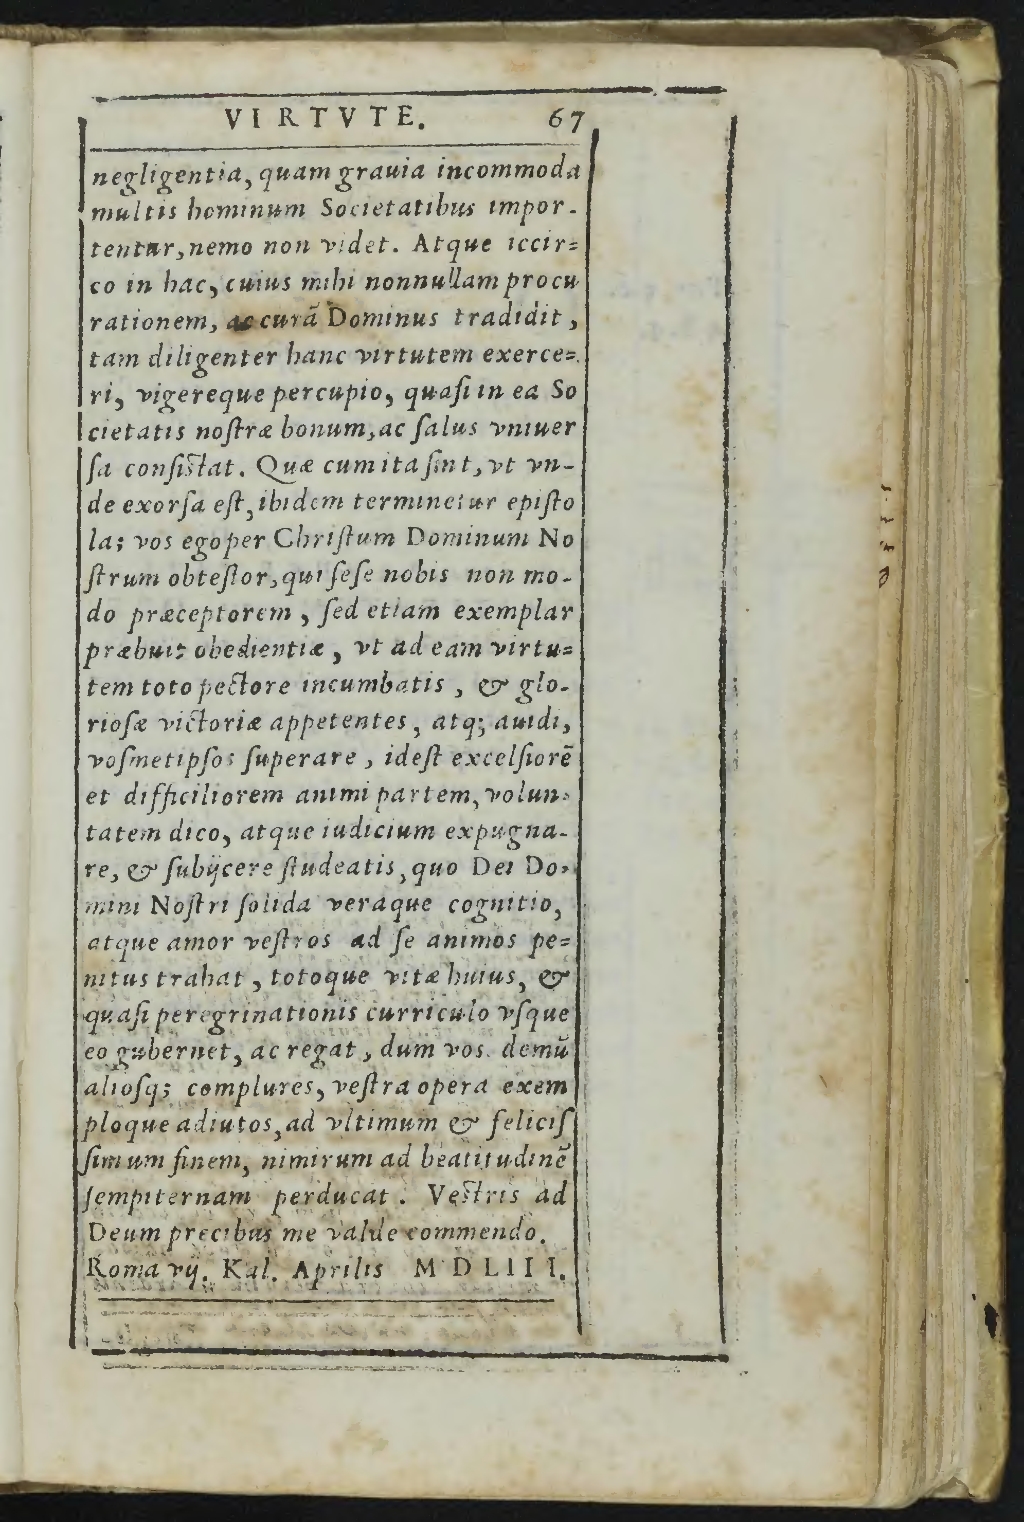 VIRTVTE. 67
negligentia, quam grauia incommoda
multis hominum Societatibus impor-
tentur, nemo non videt. Atque iccir=
co in hac, cuius mihi nonnullam procu
rationem, ac curã Dominus tradidit,
tam diligenter hanc virtutem exerce=
ri, vigereque percupio, quaſi in ea So
cietatis noſtræ bonum, ac ſalus vniuer
ſa conſiſtat. Quæ cum ita ſint, vt vn-
de exorſa eſt, ibidem terminetur epiſto
la; vos ego per Chriſtum Dominum No
ſtrum obteſtor, qui ſeſe nobis non mo-
do præceptorem, ſed etiam exemplar
præbuit obedientiæ, vt ad eam virtu=
tem toto pectore incumbatis, & glo-
rioſæ victoriæ appetentes, atq; auidi,
voſmetipſos ſuperare, ideſt excelſiorẽ
et difficiliorem animi partem, volun-
tatem dico, atque iudicium expugna-
re, & ſubijcere ſtudeatis, quo Dei Do-
mini Noſtri ſolida veraque cognitio,
atque amor veſtros ad ſe animos pe=
nitus trahat, totoque vitæ huius, &
quaſi peregrinationis curriculo vſque
eo gubernet, ac regat, dum vos demũ
alioſq; complures, veſtra opera exem
ploque adiutos, ad vltimum & feliciſ
ſimum finem, nimirum ad beatitudinẽ
ſempiternam perducat. Veſtris ad
Deum precibus me valde commendo.
Roma vij. Kal. Aprilis MDLIII.